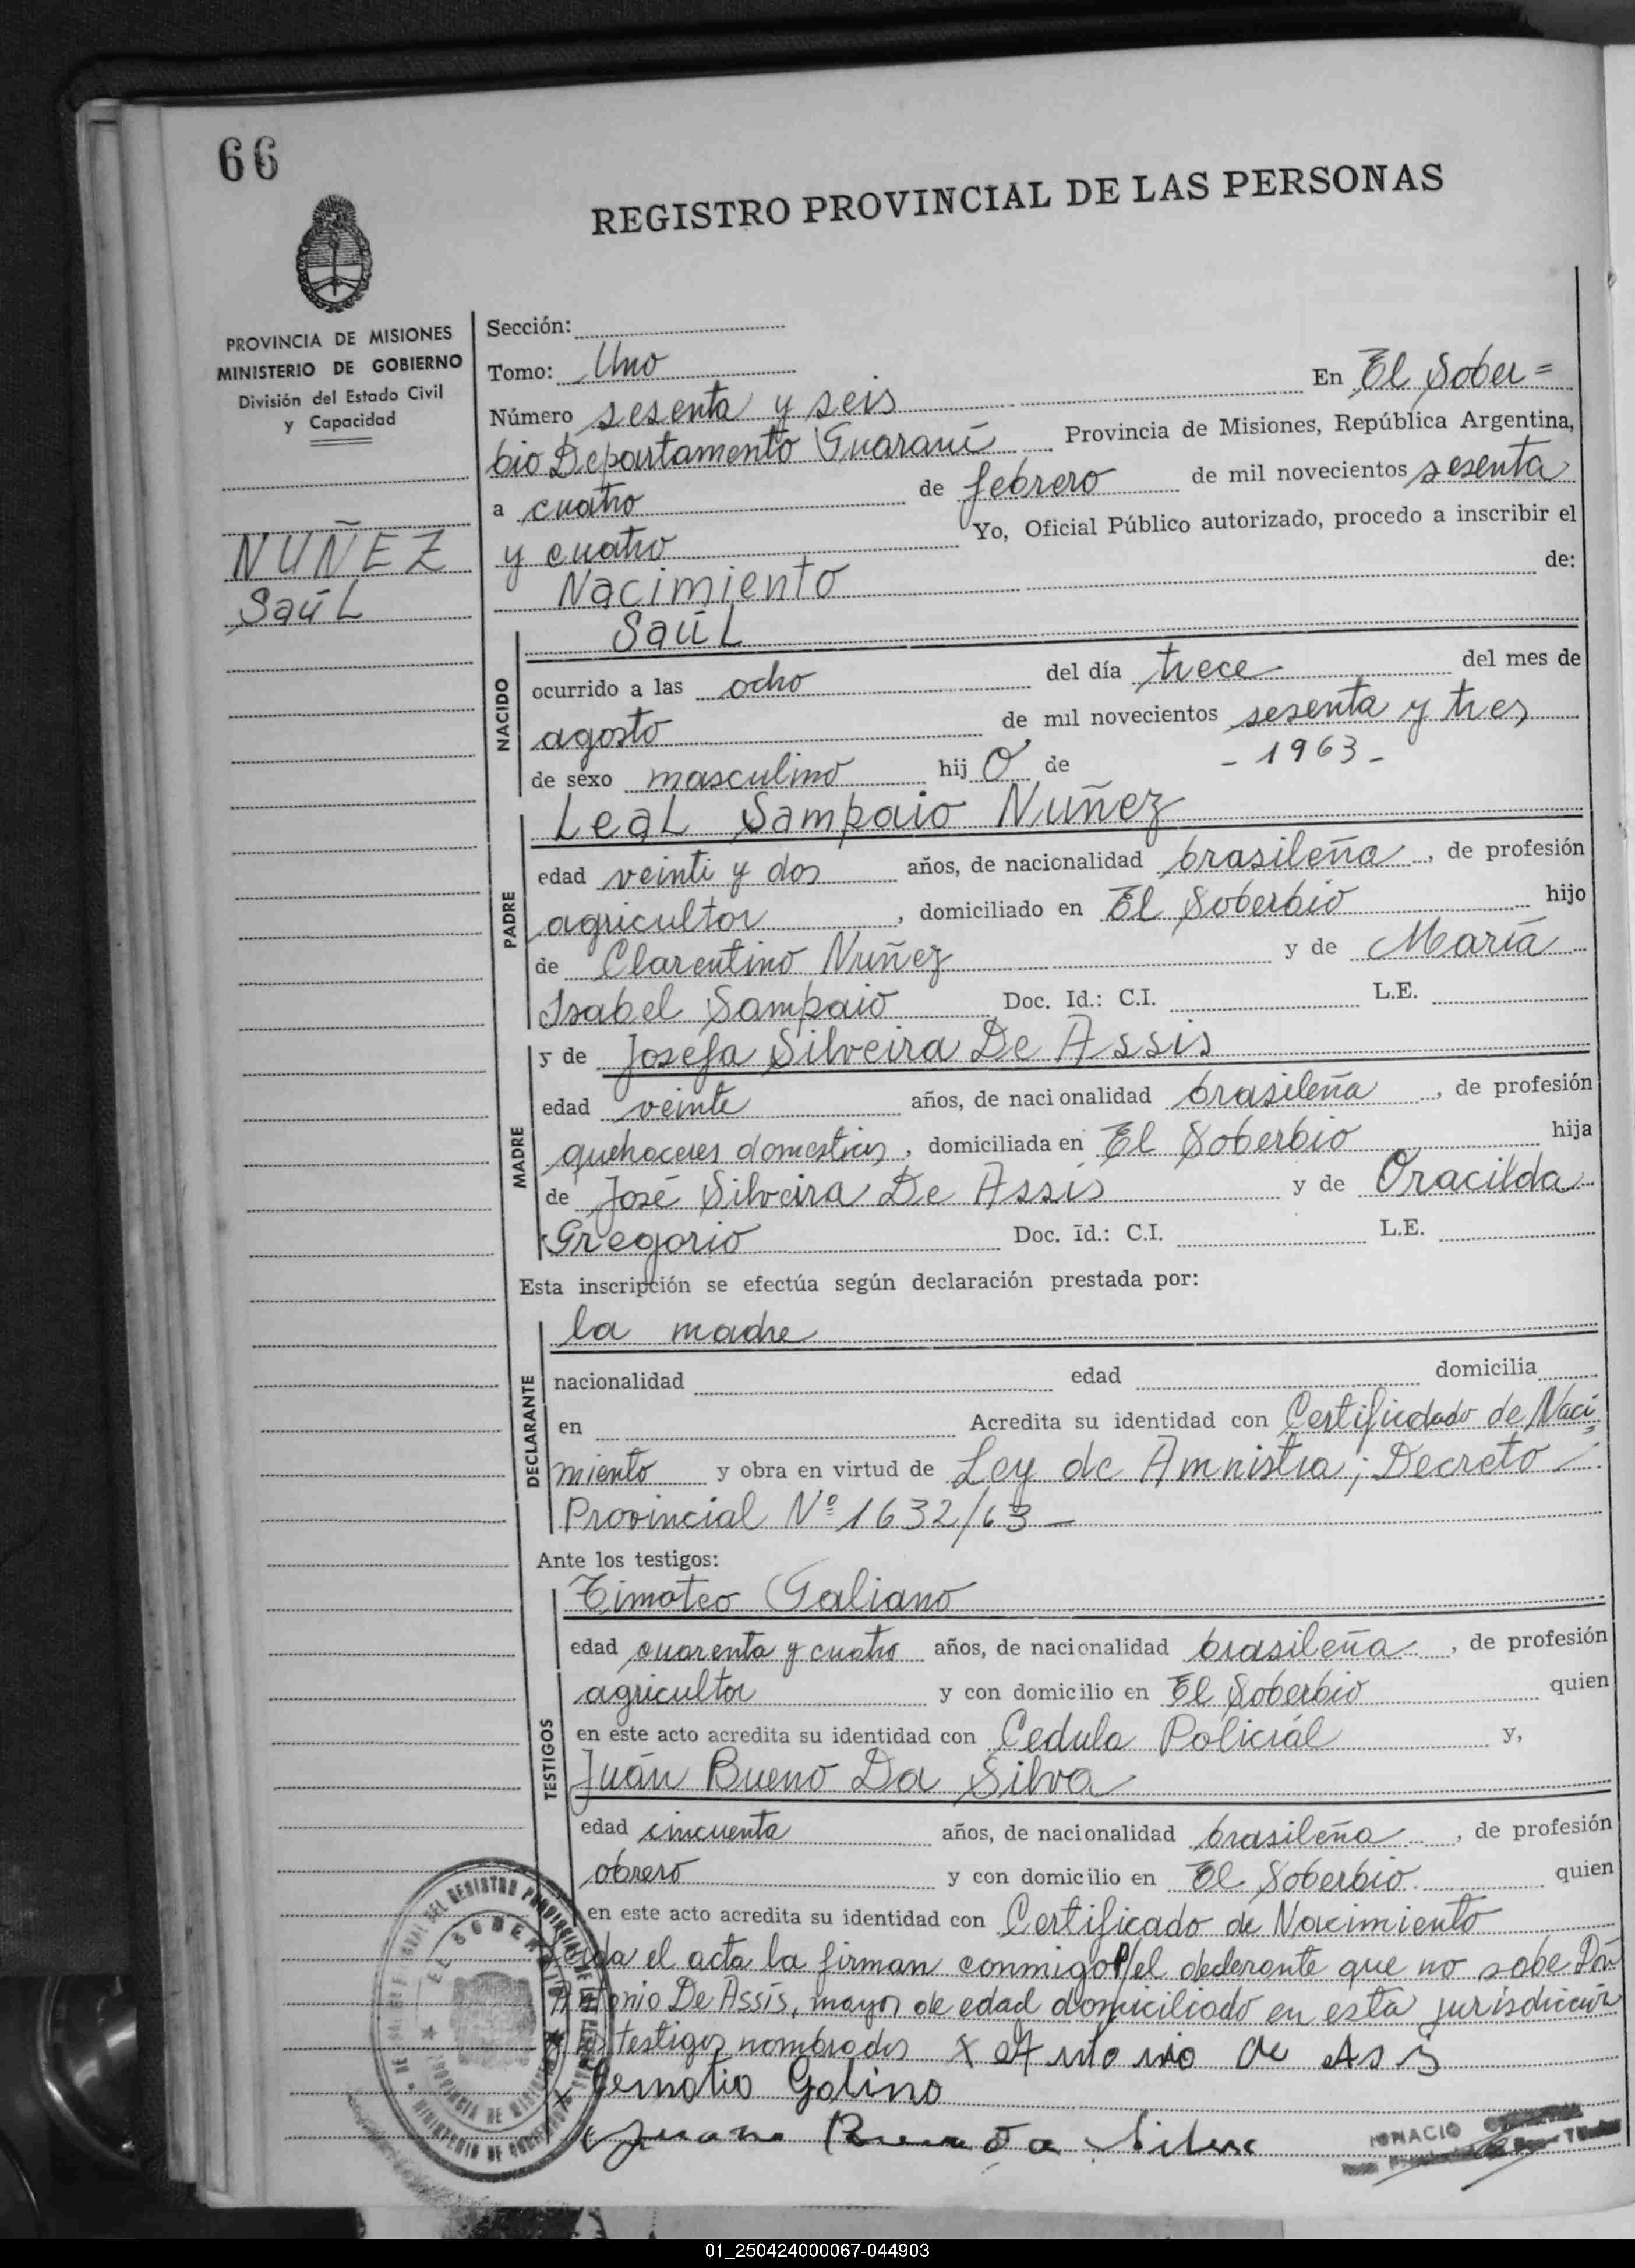 66
REGISTRO PROVINCIAL DE LAS PERSONAS
PROVINCIA DE MISIONES
MINISTERIO DE GOBIERNO
División del Estado Civil
y Capacidad
NUÑEZ
Saúl
Sección:
Tomo: Uno
En El Sober=
Número sesenta y seis
bio Departamento Guaraní Provincia de Misiones, República Argentina,
a cuatro de febrero de mil novecientos sesenta
y cuatro Yo, Oficial Público autorizado, procedo a inscribir el
Nacimiento de:
Saúl
NACIDO
ocurrido a las ocho del día trece del mes de
agosto de mil novecientos sesenta y tres
- 1963 -
de sexo masculino hij o de
PADRE
Leal Sampaio Nuñez
edad veinti y dos años, de nacionalidad brasileña, de profesión
agricultor, domiciliado en El Soberbio hijo
de Clarentino Nuñez y de María
Isabel Sampaio Doc. Id.: C.I. L.E.
MADRE
y de Josefa Silveira De Assis
edad veinte años, de nacionalidad brasileña, de profesión
quehaceres domesticos, domiciliada en El Soberbio hija
de José Silveira De Assis y de Oracilda
Gregorio Doc. Id.: C.I. L.E.
Esta inscripción se efectúa según declaración prestada por:
DECLARANTE
la madre
nacionalidad edad domicilia
en Acredita su identidad con Certificdado de Naci=
miento y obra en virtud de Ley de Amnistia; Decreto
Provincial Nº 1632/63 —
Ante los testigos:
TESTIGOS
Timoteo Galiano
edad cuarenta y cuatro años, de nacionalidad brasileña, de profesión
agricultor y con domicilio en El Soberbio quien
en este acto acredita su identidad con Cedula Policiál y,
Juán Bueno Da Silva
edad cincuenta años, de nacionalidad brasileña, de profesión
obrero y con domicilio en El Soberbio. quien
en este acto acredita su identidad con Certificado de Nacimiento
el acta la firman conmigo p/el declarante que no sabe Don
Antonio De Assis, mayor de edad domiciliado en esta jurisdicción
testigos nombrados x Antonio de Asis
x Galino
Juano Da Silva
IGNACIO
EL SOBERBIO
01_250424000067-044903